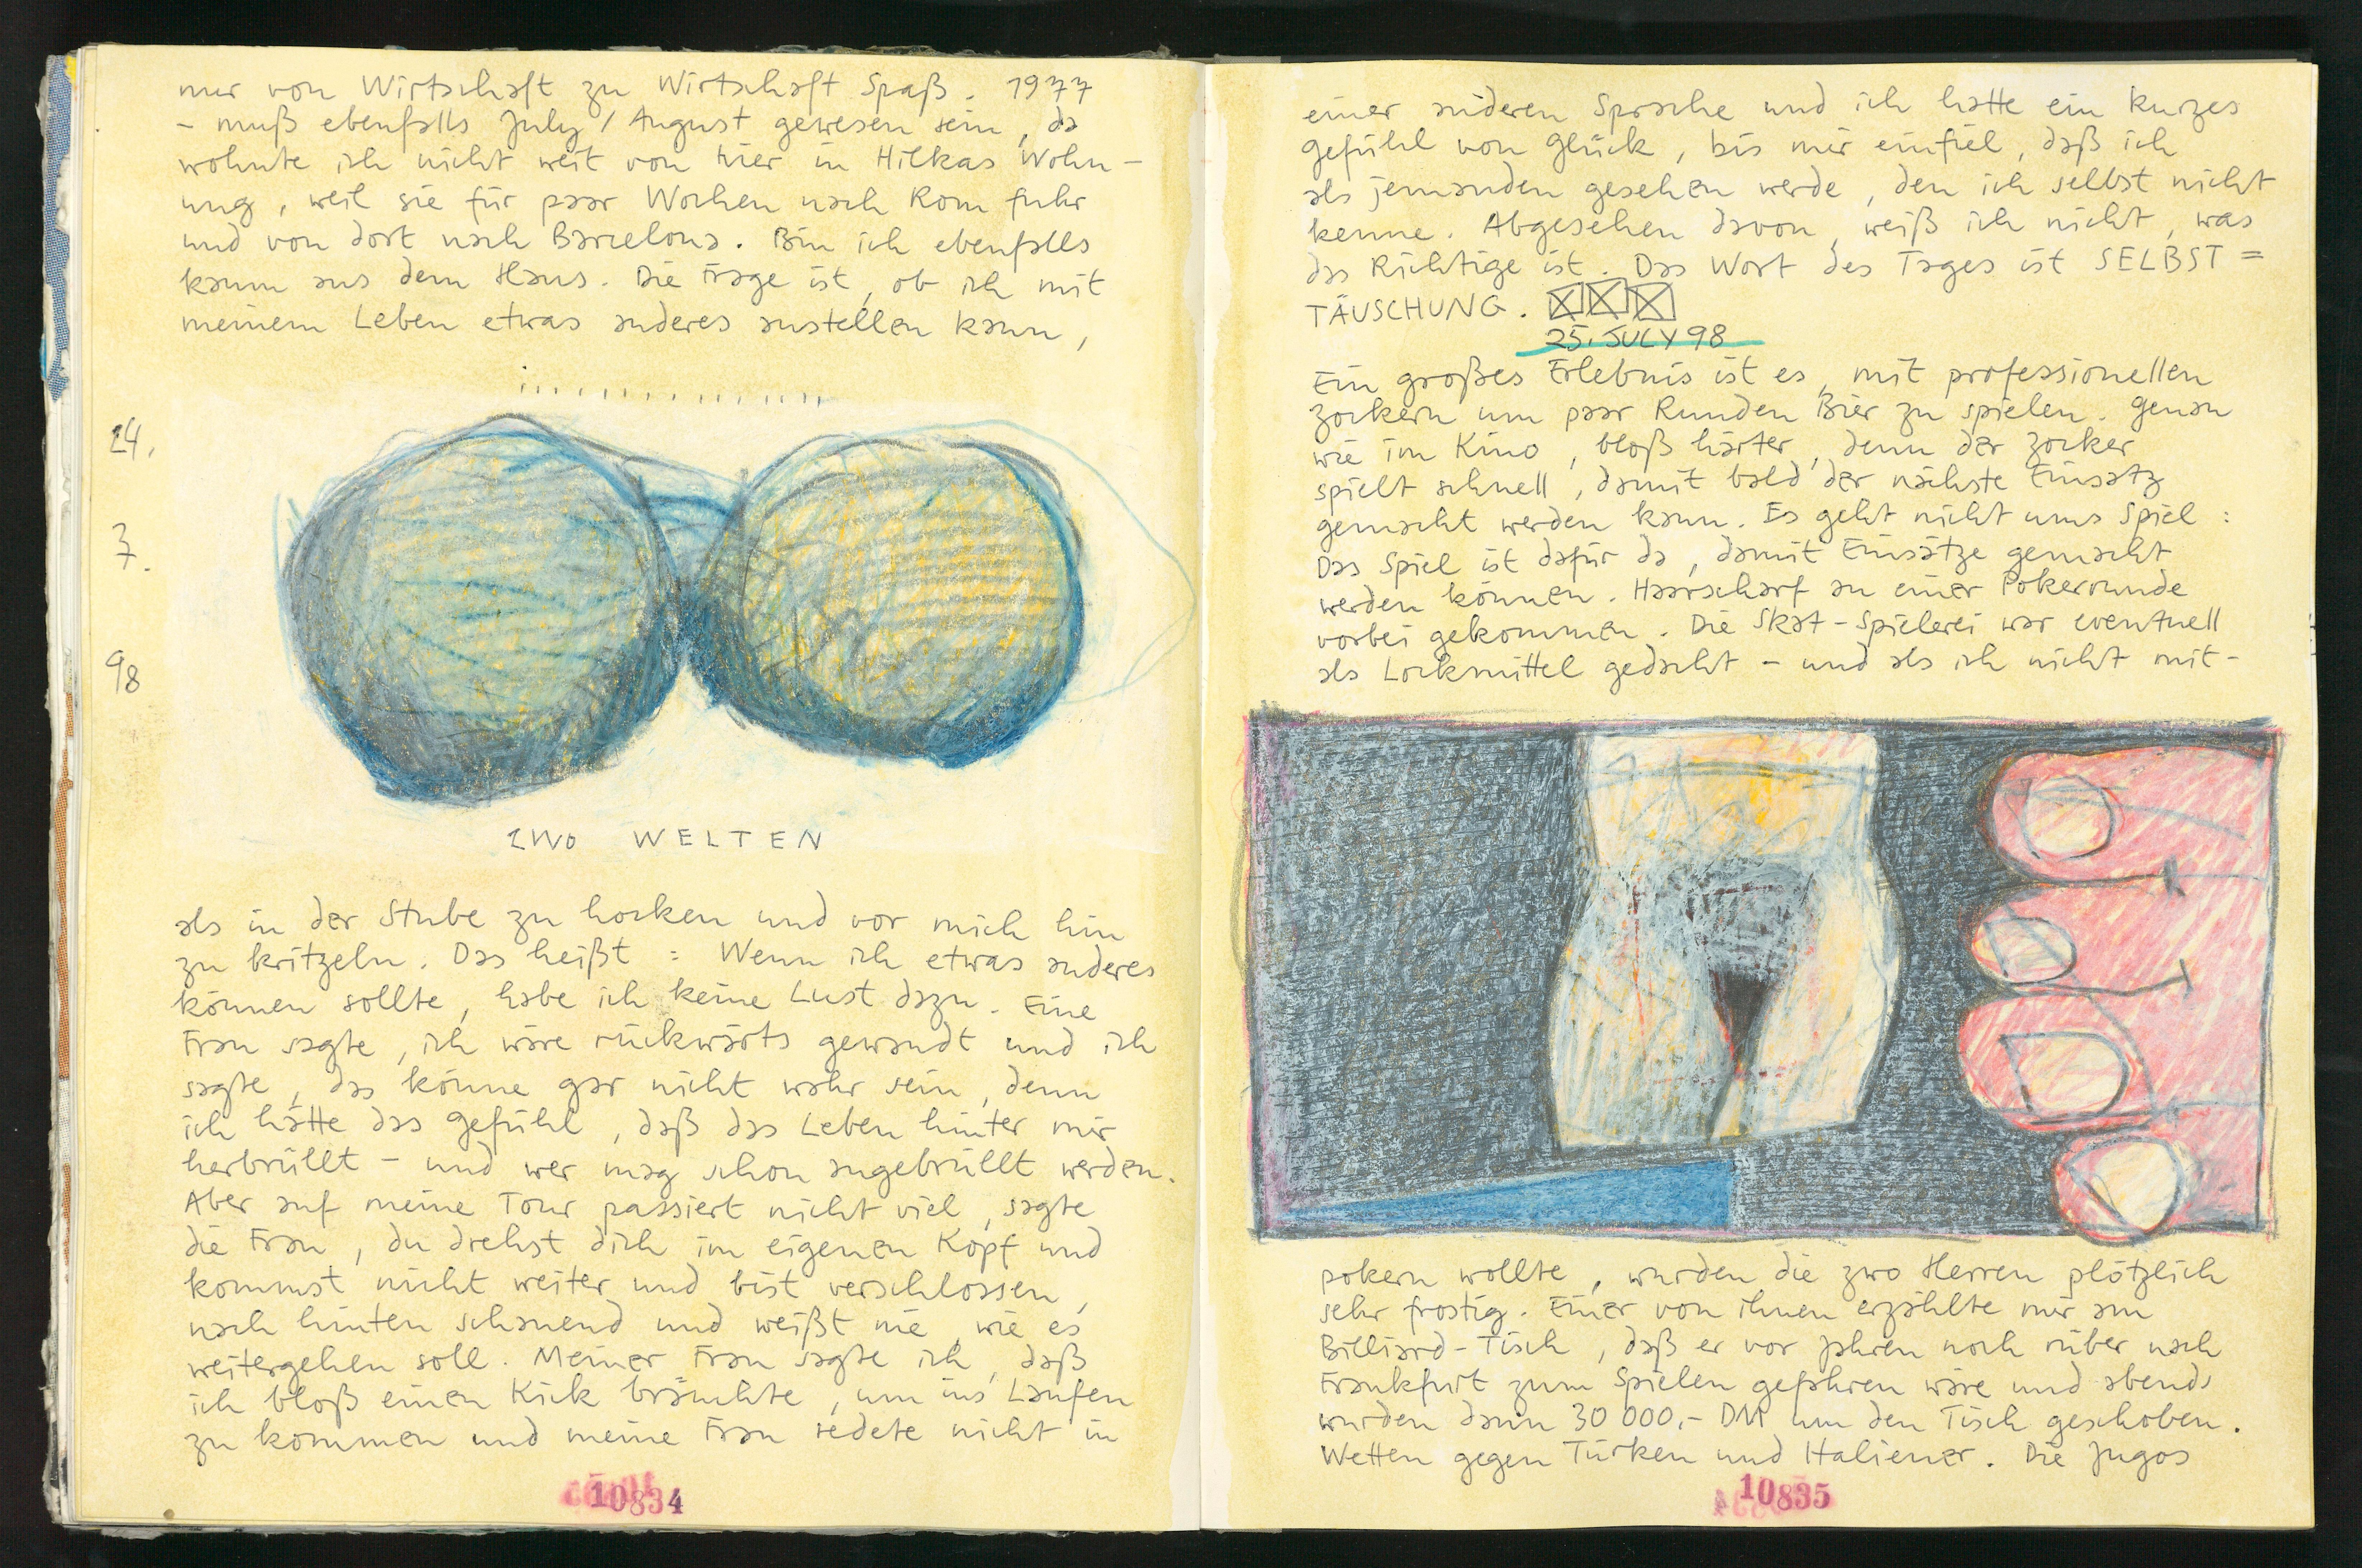 nur von Wirtschaft zu Wirtschaft Spaß. 1977
- muß ebenfalls July / August gewesen sein, da
wohnte ich nicht weit von hier in Hilkas Wohn-
ung, weil sie für paar Wochen nach Rom fuhr
und von dort nach Barcelona. Bin ich ebenfalls
kaum aus dem Haus. Die Frage ist, ob ich mit
meinem Leben etwas anderes anstellen kann,
24.
7.
98
ZWO WELTEN
als in der Stube zu hocken und vor mich hin
zu kritzeln. Das heißt : Wenn ich etwas anderes
können sollte, habe ich keine Lust dazu. Eine
Frau sagte, ich wäre rückwärts gewandt und ich
sagte, das könne gar nicht wahr sein, denn
ich hätte das Gefühl, daß das Leben hinter mir
herbrüllt - und wer mag schon angebrüllt werden.
Aber auf meine Tour passiert nicht viel, sagte
die Frau, du drehst dich im eigenen Kopf und
kommst nicht weiter und bist verschlossen,
nach hinten schauend und weißt nie, wie es
weitergehen soll. Meiner Frau sagte ich, daß
ich bloß einen Kick bräuchte, um ins Laufen
zu kommen und meine Frau redete nicht in
10834
einer anderen Sprache und ich hatte ein kurzes
Gefühl von Glück, bis mir einfiel, daß ich
als jemanden gesehen werde, den ich selbst nicht
kenne. Abgesehen davon, weiß ich nicht, was
das Richtige ist. Das Wort des Tages ist SELBST =
TÄUSCHUNG.
25. JULY 98
Ein großes Erlebnis ist es, mit professionellen
Zockern um paar Runden Bier zu spielen. Genau
wie im Kino, bloß härter, denn der Zocker
spielt schnell, damit bald der nächste Einsatz
gemacht werden kann. Es geht nicht ums Spiel :
Das Spiel ist dafür da, damit Einsätze gemacht
werden können. Haarscharf an einer Pokerrunde
vorbei gekommen. Die Skat-Spielerei war eventuell
als Lockmittel gedacht - und als ich nicht mit-
pokern wollte, wurden die zwo Herren plötzlich
sehr frostig. Einer von ihnen erzählte mir am
Billiard-Tisch, daß er vor Jahren noch rüber nach
Frankfurt zum Spielen gefahren wäre und abends
wurden dann 30 000,- DM um den Tisch geschoben.
Wetten gegen Türken und Italiener. Die Jugos
10835